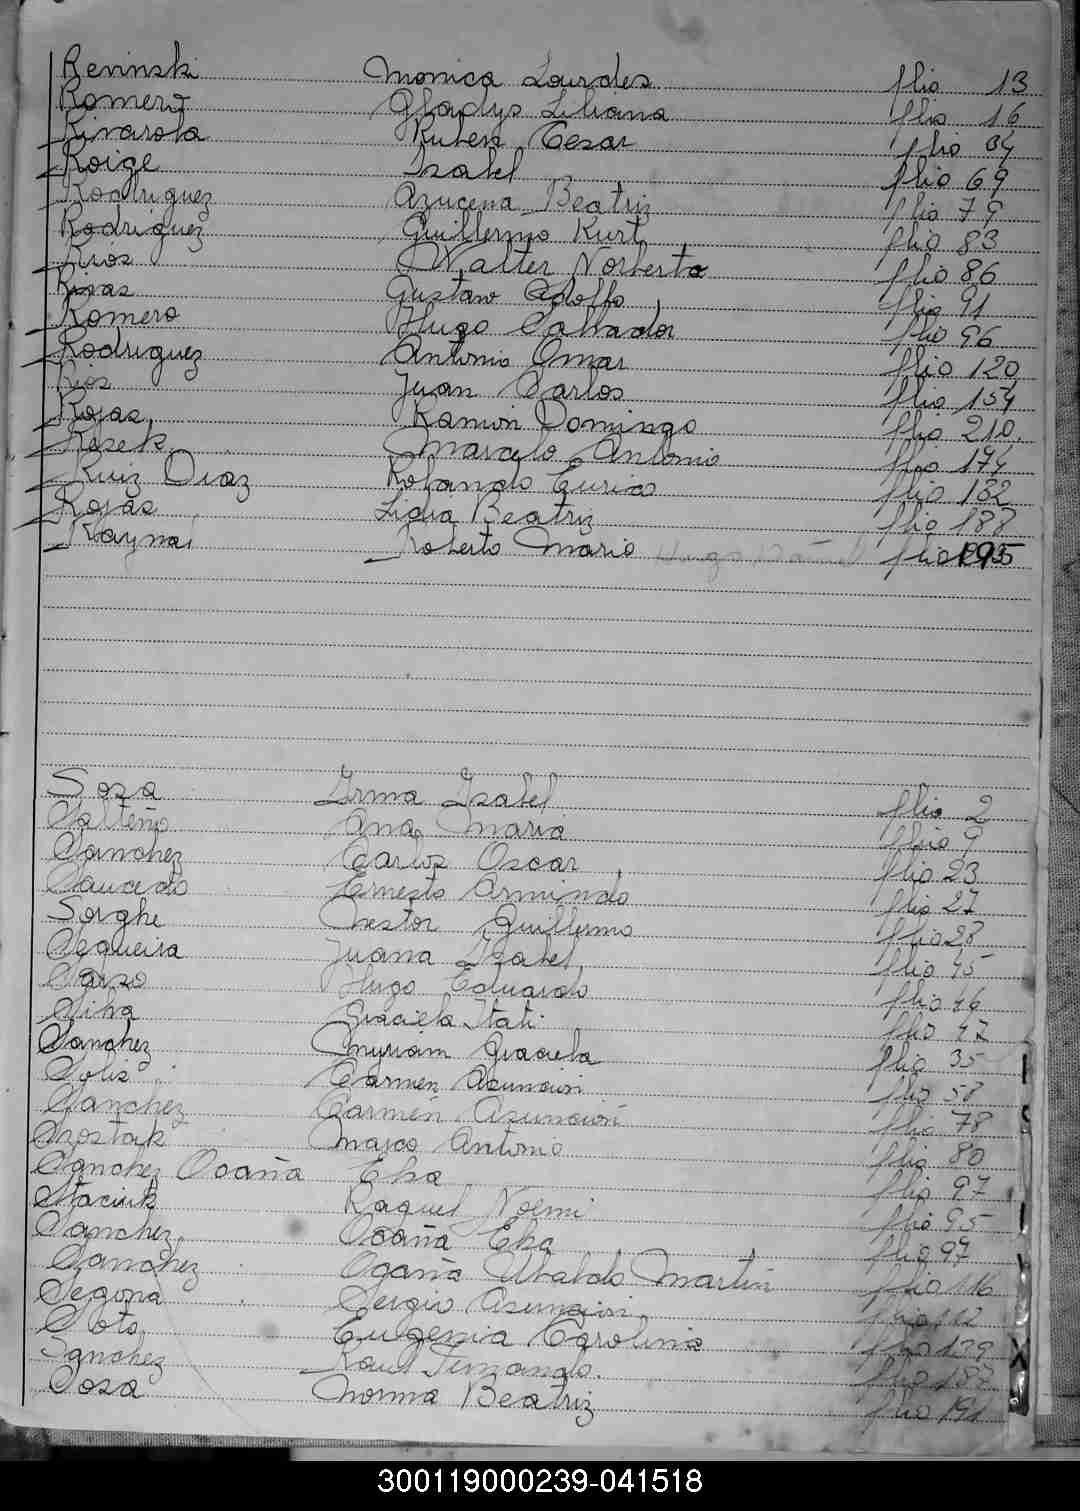 Revinski Monica Lourdes flio 13
Romero Gladys Liliana flio 16
Rivarola Ruben Cesar flio 34
Roige Isabel flio 69
Rodriguez Azucena Beatriz flio 79
Rodriguez Guillermo Kurt flio 83
Rios Walter Norberto flio 86
Rivas Gustavo Adolfo flio 91
Romero Hugo Salvador flio 96
Rodriguez Antonio Omar flio 120
Rios Juan Carlos flio 154
Rojas Ramón Domingo flio 210.
Marcelo Antonio flio 174
Ruiz Diaz Rolando Eurico flio 182
Rojas Ligia Beatriz flio 188
Raynal Roberto Mario flio 195
Sosa Irma Isabel flio 2
Salteño Ana Maria flio 9
Sanchez Carlos Oscar flio 23
Saucedo Ernesto Armindo flio 27
Sorghe Nestor Guillermo flio 28
Sequeira Juana Isabel flio 45
Hugo Eduardo flio 46
Silva Graciela Itati flio 47
Sanchez Myriam Graciela flio 35
Solis Carmen Asunción flio 58
Sanchez Carmen Asunción flio 78
Szostak Marco Antonio flio 80
Sanchez Ocaña Elsa flio 97
Staciuk Raquel Noemi flio 95
Sanchez Ocaña Elsa flio 97
Sanchez Ogaña Ubaldo Martin flio 116
Segovia Sergio Asunción flio 112
Soto Eugenia Carolina flio 139
Sanchez Raul Fernando. flio 187
Sosa Norma Beatriz flio 191
300119000239-041518